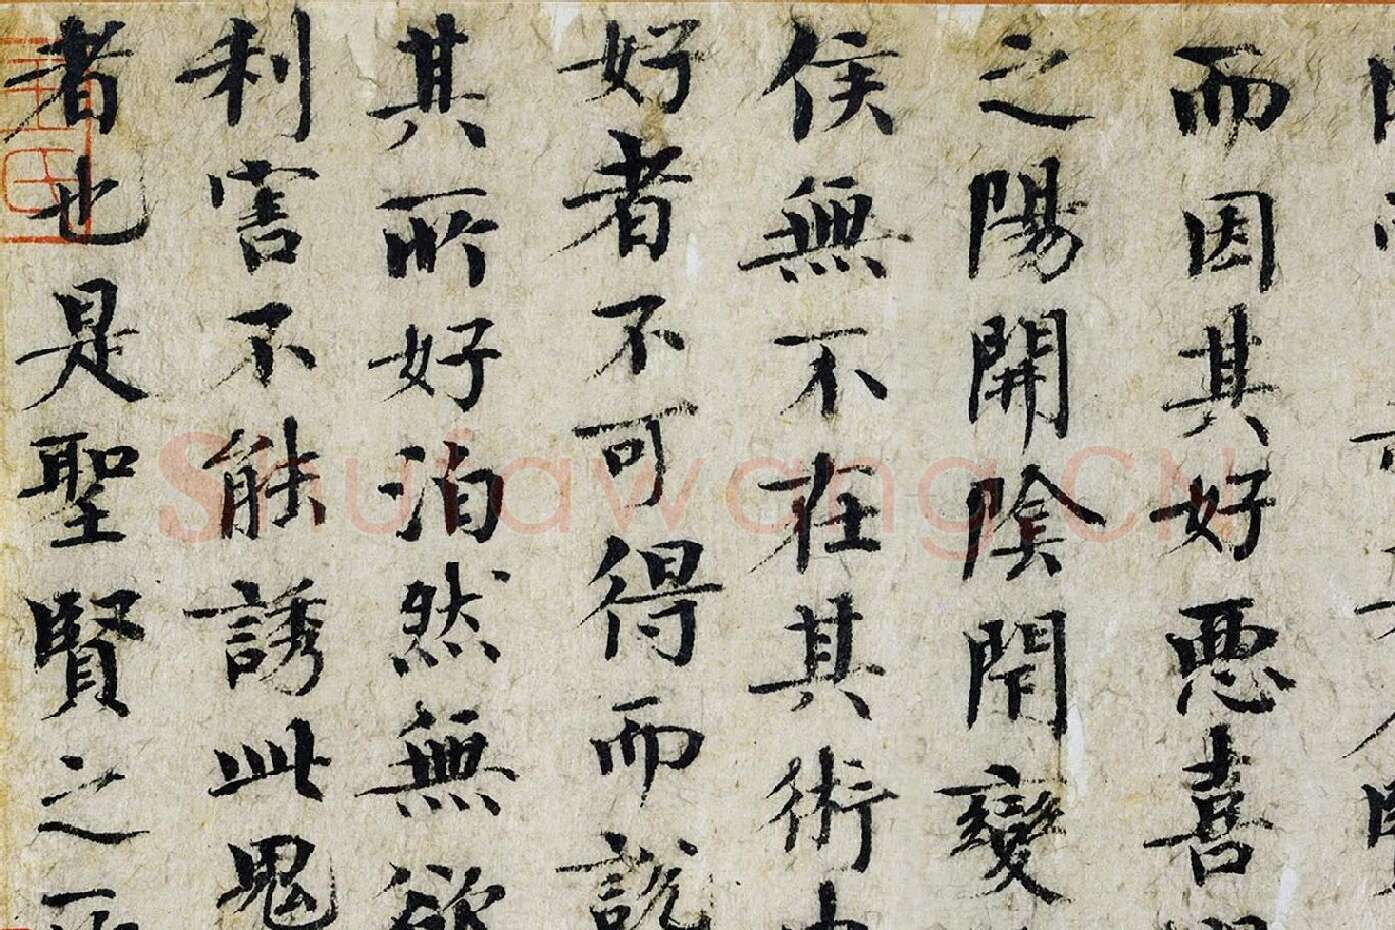 而因其好惡喜
之陽開陰閇變
侯無不在其術中
好者不可得而說
其所好泊然無欲
利害不能誘此鬼
者也是聖賢之所
Shufawang.CN